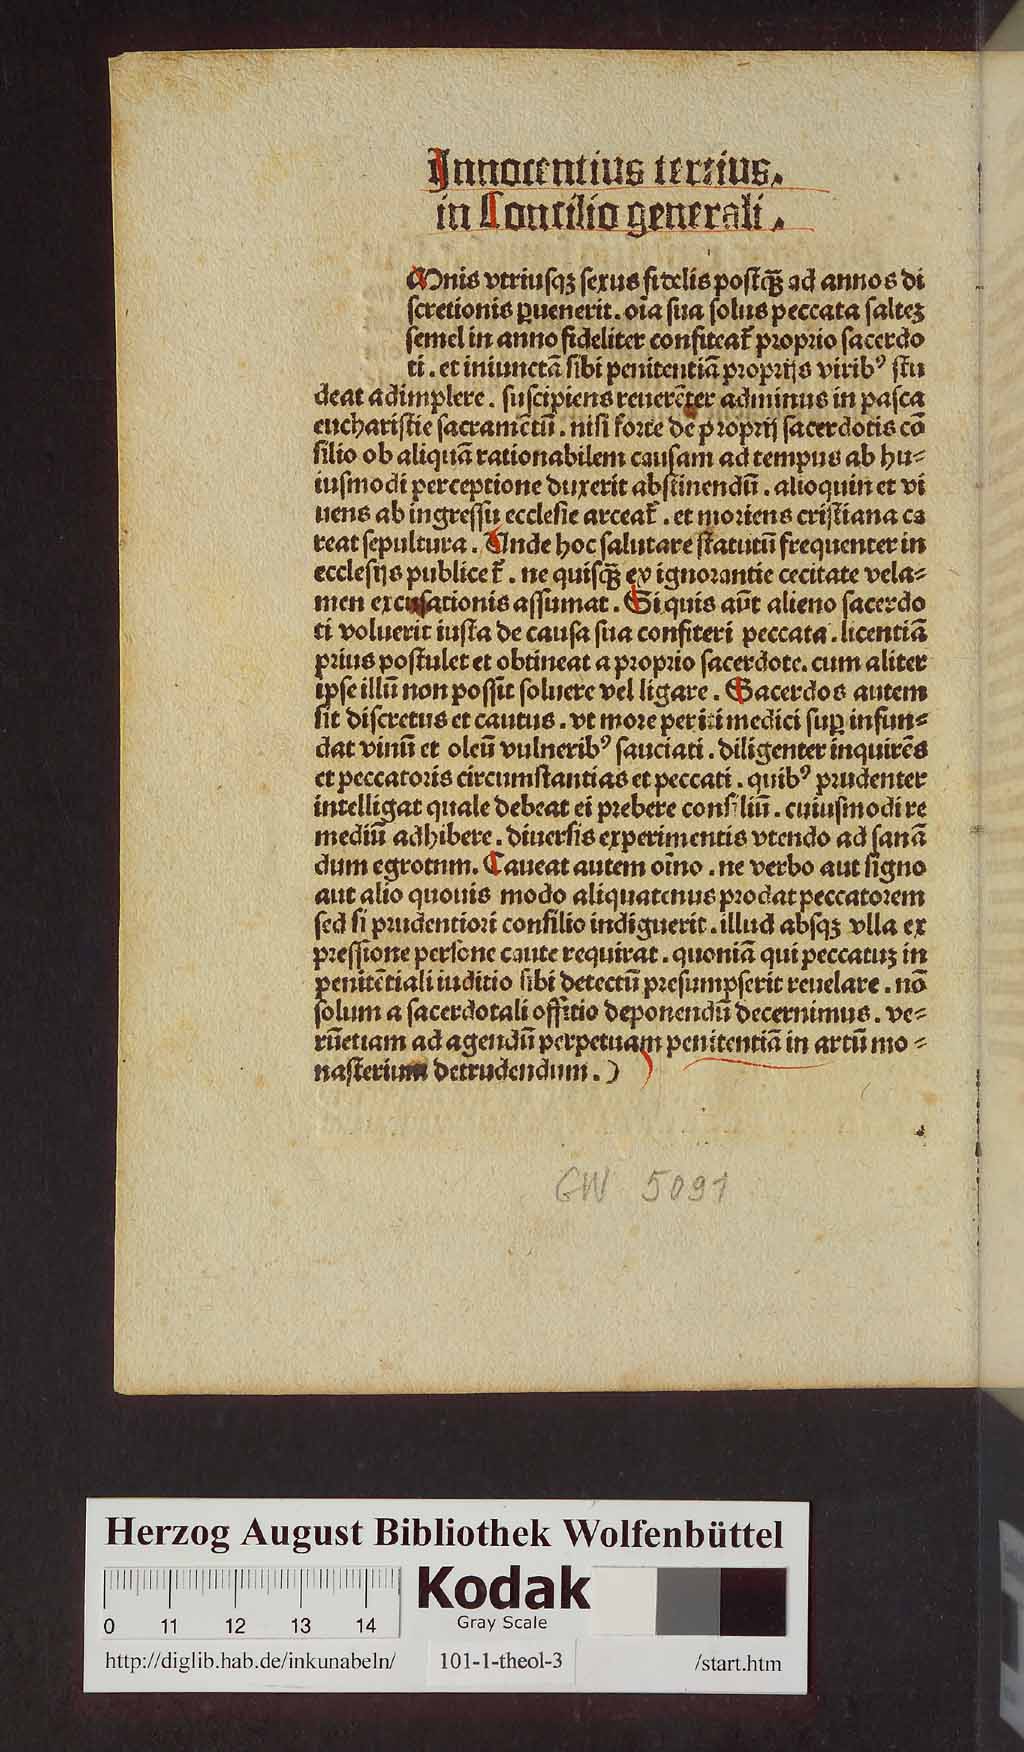 Innocentius tertius.
in Concilio generali.
Omnis vtriusqꝫ sexus fidelis postqꝫ̄ ad annos di
scretionis ꝑuenerit. oīa sua solus peccata salteꝫ
semel in anno fideliter confiteat᷑ proprio sacerdo
ti. et iniunctā sibi penitentiā proprijs viribꝰ stu
deat adimplere. suscipiens reuerēter adminus in pasca
eucharistie sacramētū. nisi forte de proprij sacerdotis cō
silio ob aliquā rationabilem causam ad tempus ab hu⸗
iusmodi perceptione duxerit abstinendū. alioquin et vi
uens ab ingressu ecclesie arceat᷑. et moriens cristiana ca
reat sepultura. Vnde hoc salutare statutū frequenter in
ecclesijs publicet᷑. ne quisqꝫ̄ ex ignorantie cecitate vela⸗
men excusationis assumat. Si quis aūt alieno sacerdo
ti voluerit iusta de causa sua confiteri peccata. licentiā
prius postulet et obtineat a proprio sacerdote. cum aliter
ipse illū non possit soluere vel ligare. Sacerdos autem
sit discretus et cautus. vt more periti medici suꝑ infun⸗
dat vinū et oleū vulneribꝰ sauciati. diligenter inquirēs
et peccatoris circumstantias et peccati. quibꝰ prudenter
intelligat quale debeat ei prebere consiliū. cuiusmodi re
mediū adhibere. diuersis experimentis vtendo ad sanā
dum egrotum. Caueat autem oīno. ne verbo aut signo
aut alio quouis modo aliquatenus prodat peccatorem
sed si prudentiori consilio indiguerit. illud absqꝫ vlla ex
pressione persone caute requirat. quoniā qui peccatuꝫ in
penitētiali iuditio sibi detectū presumpserit reuelare. nō
solum a sacerdotali offitio deponendū decernimus. ve⸗
rūetiam ad agendū perpetuam penitentiā in artū mo⸗
nasterium detrudendum.)
GW 5091
Herzog August Bibliothek Wolfenbüttel
Kodak
Gray Scale
0 11 12 13 14
http://diglib.hab.de/inkunabeln/ 101-1-theol-3 /start.htm